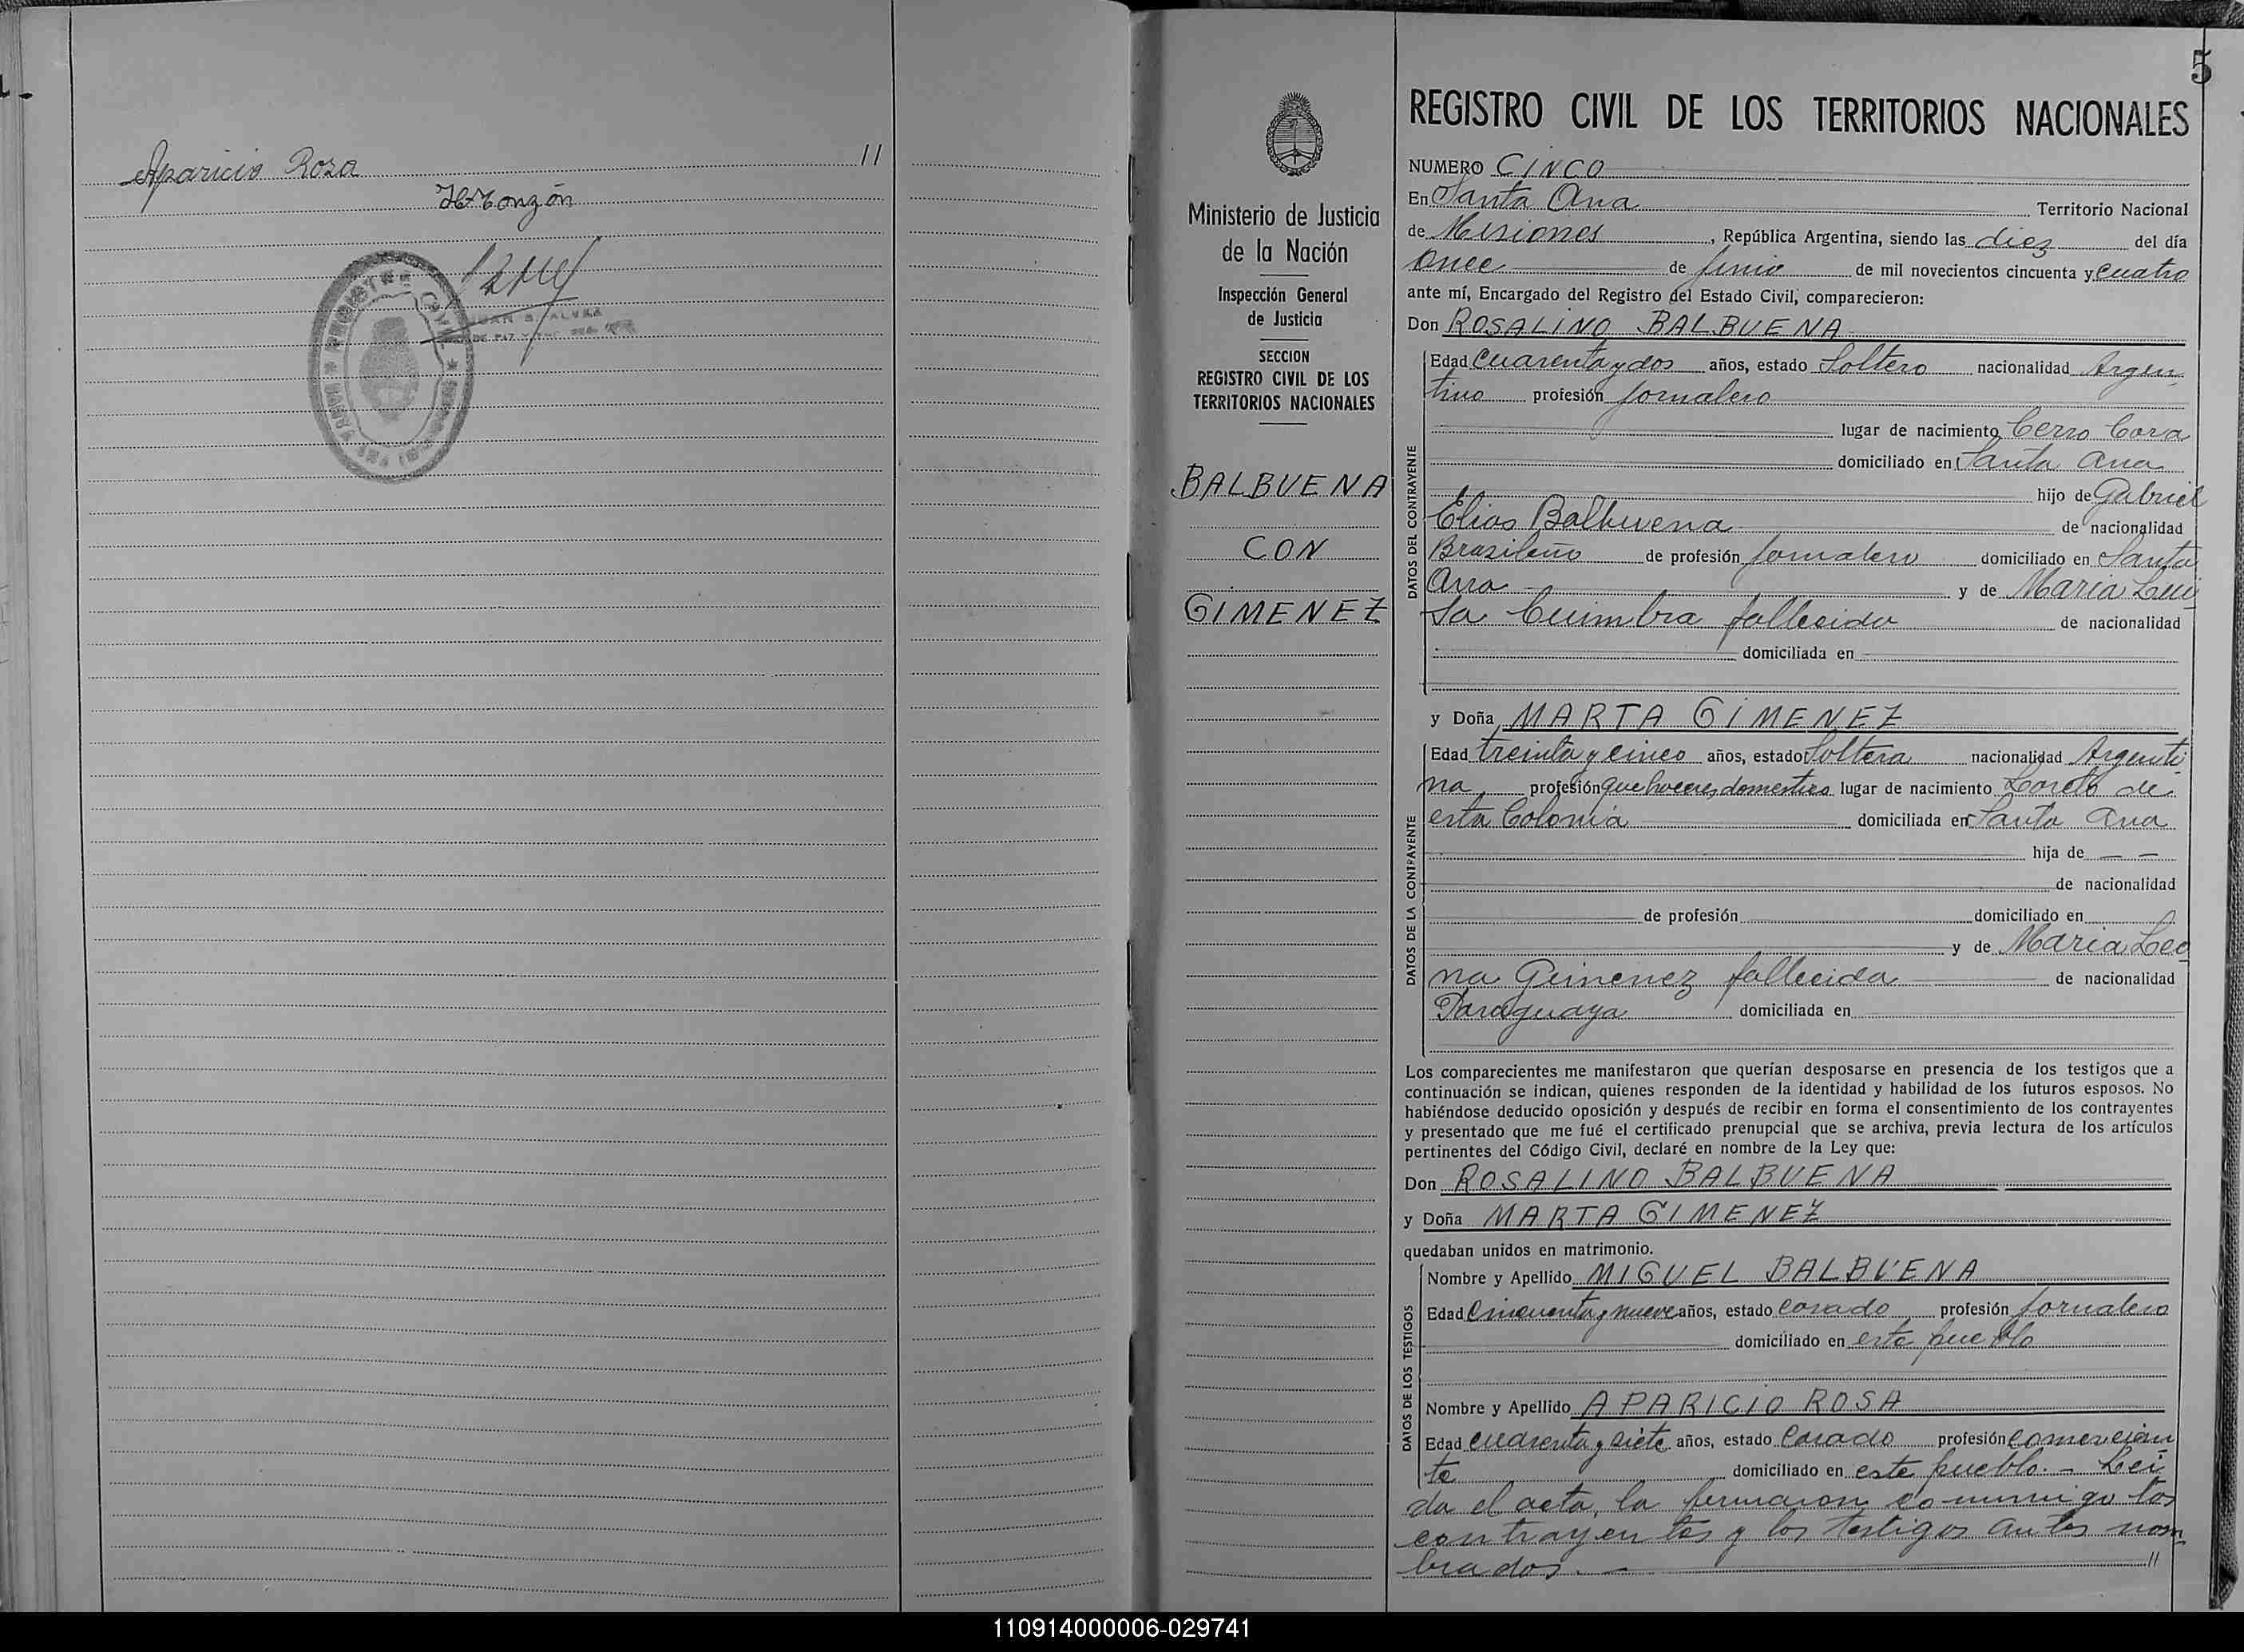 Aparicio Rosa 11
H Monzón
REGISTRO CIVIL
JUAN ALVEZ
DE PAZ
5
REGISTRO CIVIL DE LOS TERRITORIOS NACIONALES
Ministerio de Justicia
de la Nación
Inspección General
de Justicia
SECCION
REGISTRO CIVIL DE LOS
TERRITORIOS NACIONALES
BALBUENA
CON
GIMENEZ
NUMERO CINCO
En Santa Ana Territorio Nacional
de Misiones, República Argentina, siendo las diez del día
once de junio de mil novecientos cincuenta y cuatro
ante mí, Encargado del Registro del Estado Civil, comparecieron:
Don ROSALINO BALBUENA
DATOS DEL CONTRAYENTE
Edad cuarenta y dos años, estado Soltero nacionalidad Argen
tino profesión jornalero
lugar de nacimiento Cerro Cora
domiciliado en Santa Ana
hijo de Gabriel
Elias Balbuena de nacionalidad
Brasileño de profesión jornalero domiciliado en Santa
Ana y de Maria Lui
sa Cuimbra fallecida de nacionalidad
domiciliada en
y Doña MARTA GIMENEZ
DATOS DE LA CONTRAYENTE
Edad treinta y cinco años, estado Soltera nacionalidad Argenti
na profesión quehaceres domesticos lugar de nacimiento Loreto de
esta Colonia domiciliada en Santa Ana
hija de — —
de nacionalidad
de profesión domiciliado en
y de Maria Leo
na Gimenez fallecida de nacionalidad
Paraguaya domiciliada en
Los comparecientes me manifestaron que querían desposarse en presencia de los testigos que a
continuación se indican, quienes responden de la identidad y habilidad de los futuros esposos. No
habiéndose deducido oposición y después de recibir en forma el consentimiento de los contrayentes
y presentado que me fué el certificado prenupcial que se archiva, previa lectura de los artículos
pertinentes del Código Civil, declaré en nombre de la Ley que:
Don ROSALINO BALBUENA
y Doña MARTA GIMENEZ
quedaban unidos en matrimonio.
DATOS DE LOS TESTIGOS
Nombre y Apellido MIGUEL BALBUENA
Edad Cincuenta y nueve años, estado Casado profesión jornalero
domiciliado en este pueblo
Nombre y Apellido APARICIO ROSA
Edad cuarenta y siete años, estado Casado profesión comercian
te domiciliado en este pueblo. - Lei
da el acta, la firmaron conmigo los
contrayentes y los testigos antes nom
brados. - 11
110914000006-029741